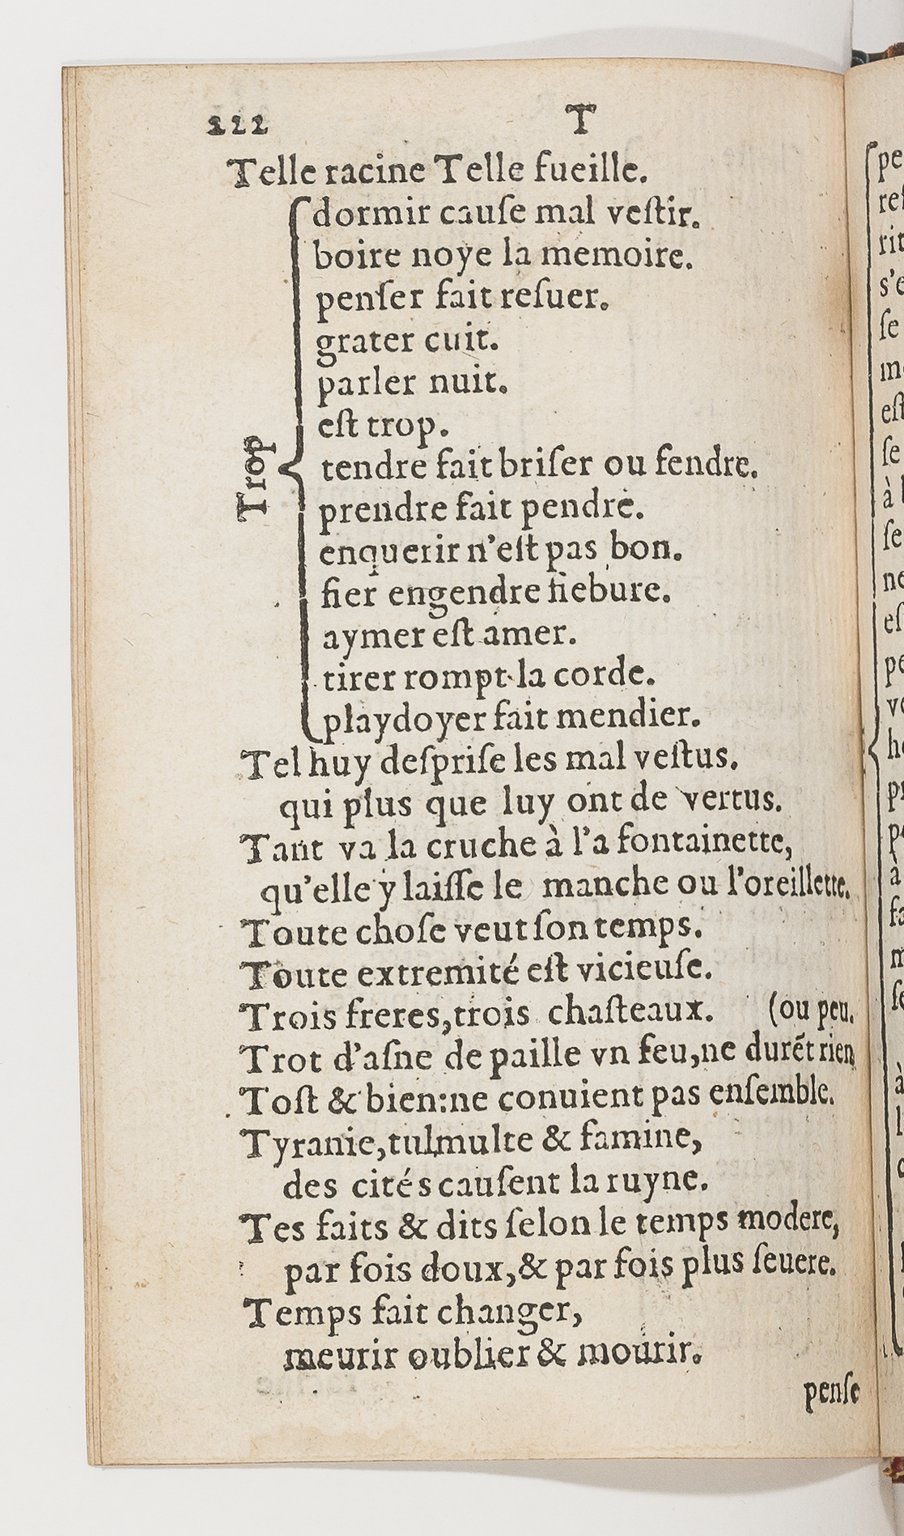 222 T
Telle racine Telle fueille.
Trop
dormir cauſe mal veſtir.
boire noye la memoire.
penſer fait reſuer.
grater cuit.
parler nuit.
eſt trop.
tendre fait briſer ou fendre.
prendre fait pendre.
enquerir n'eſt pas bon.
fier engendre fiebure.
aymer eſt amer.
tirer rompt la corde.
playdoyer fait mendier.
Tel huy deſpriſe les mal veſtus.
qui plus que luy ont de vertus.
Tant va la cruche à l'a fontainette,
qu'elle y laiſſe le manche ou l'oreillette.
Toute choſe veut ſon temps.
Toute extremité eſt vicieuſe.
Trois freres, trois chaſteaux. (ou peu.
Trot d'aſne de paille vn feu, ne durẽt rien
Toſt & bien: ne conuient pas enſemble.
Tyranie, tulmulte & famine,
des cités cauſent la ruyne.
Tes faits & dits ſelon le temps modere,
par fois doux, & par fois plus ſeuere.
Temps fait changer,
meurir oublier & mourir.
penſe